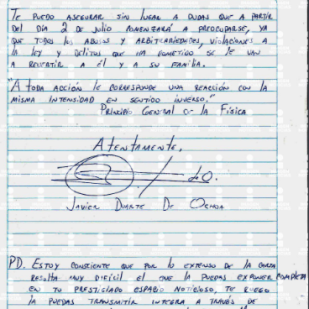 Te puedo asegurar sin lugar a dudas que a partir
del día 2 de julio comenzará a preocuparse, ya
que todos los abusos y arbitrariedades, violaciones a
la ley y delitos que ha cometido se le van
a revertir a él y a su familia.
"A toda acción le corresponde una reacción con la
misma intensidad en sentido inverso."
Principio General de la Física
Atentamente,
Javier Duarte De Ochoa
PD. Estoy consciente que por lo extenso de la carta
resulta muy difícil el que la puedas exponer completa
en tu prestigiado espacio noticioso, te ruego
la puedas transmitir íntegra a través de